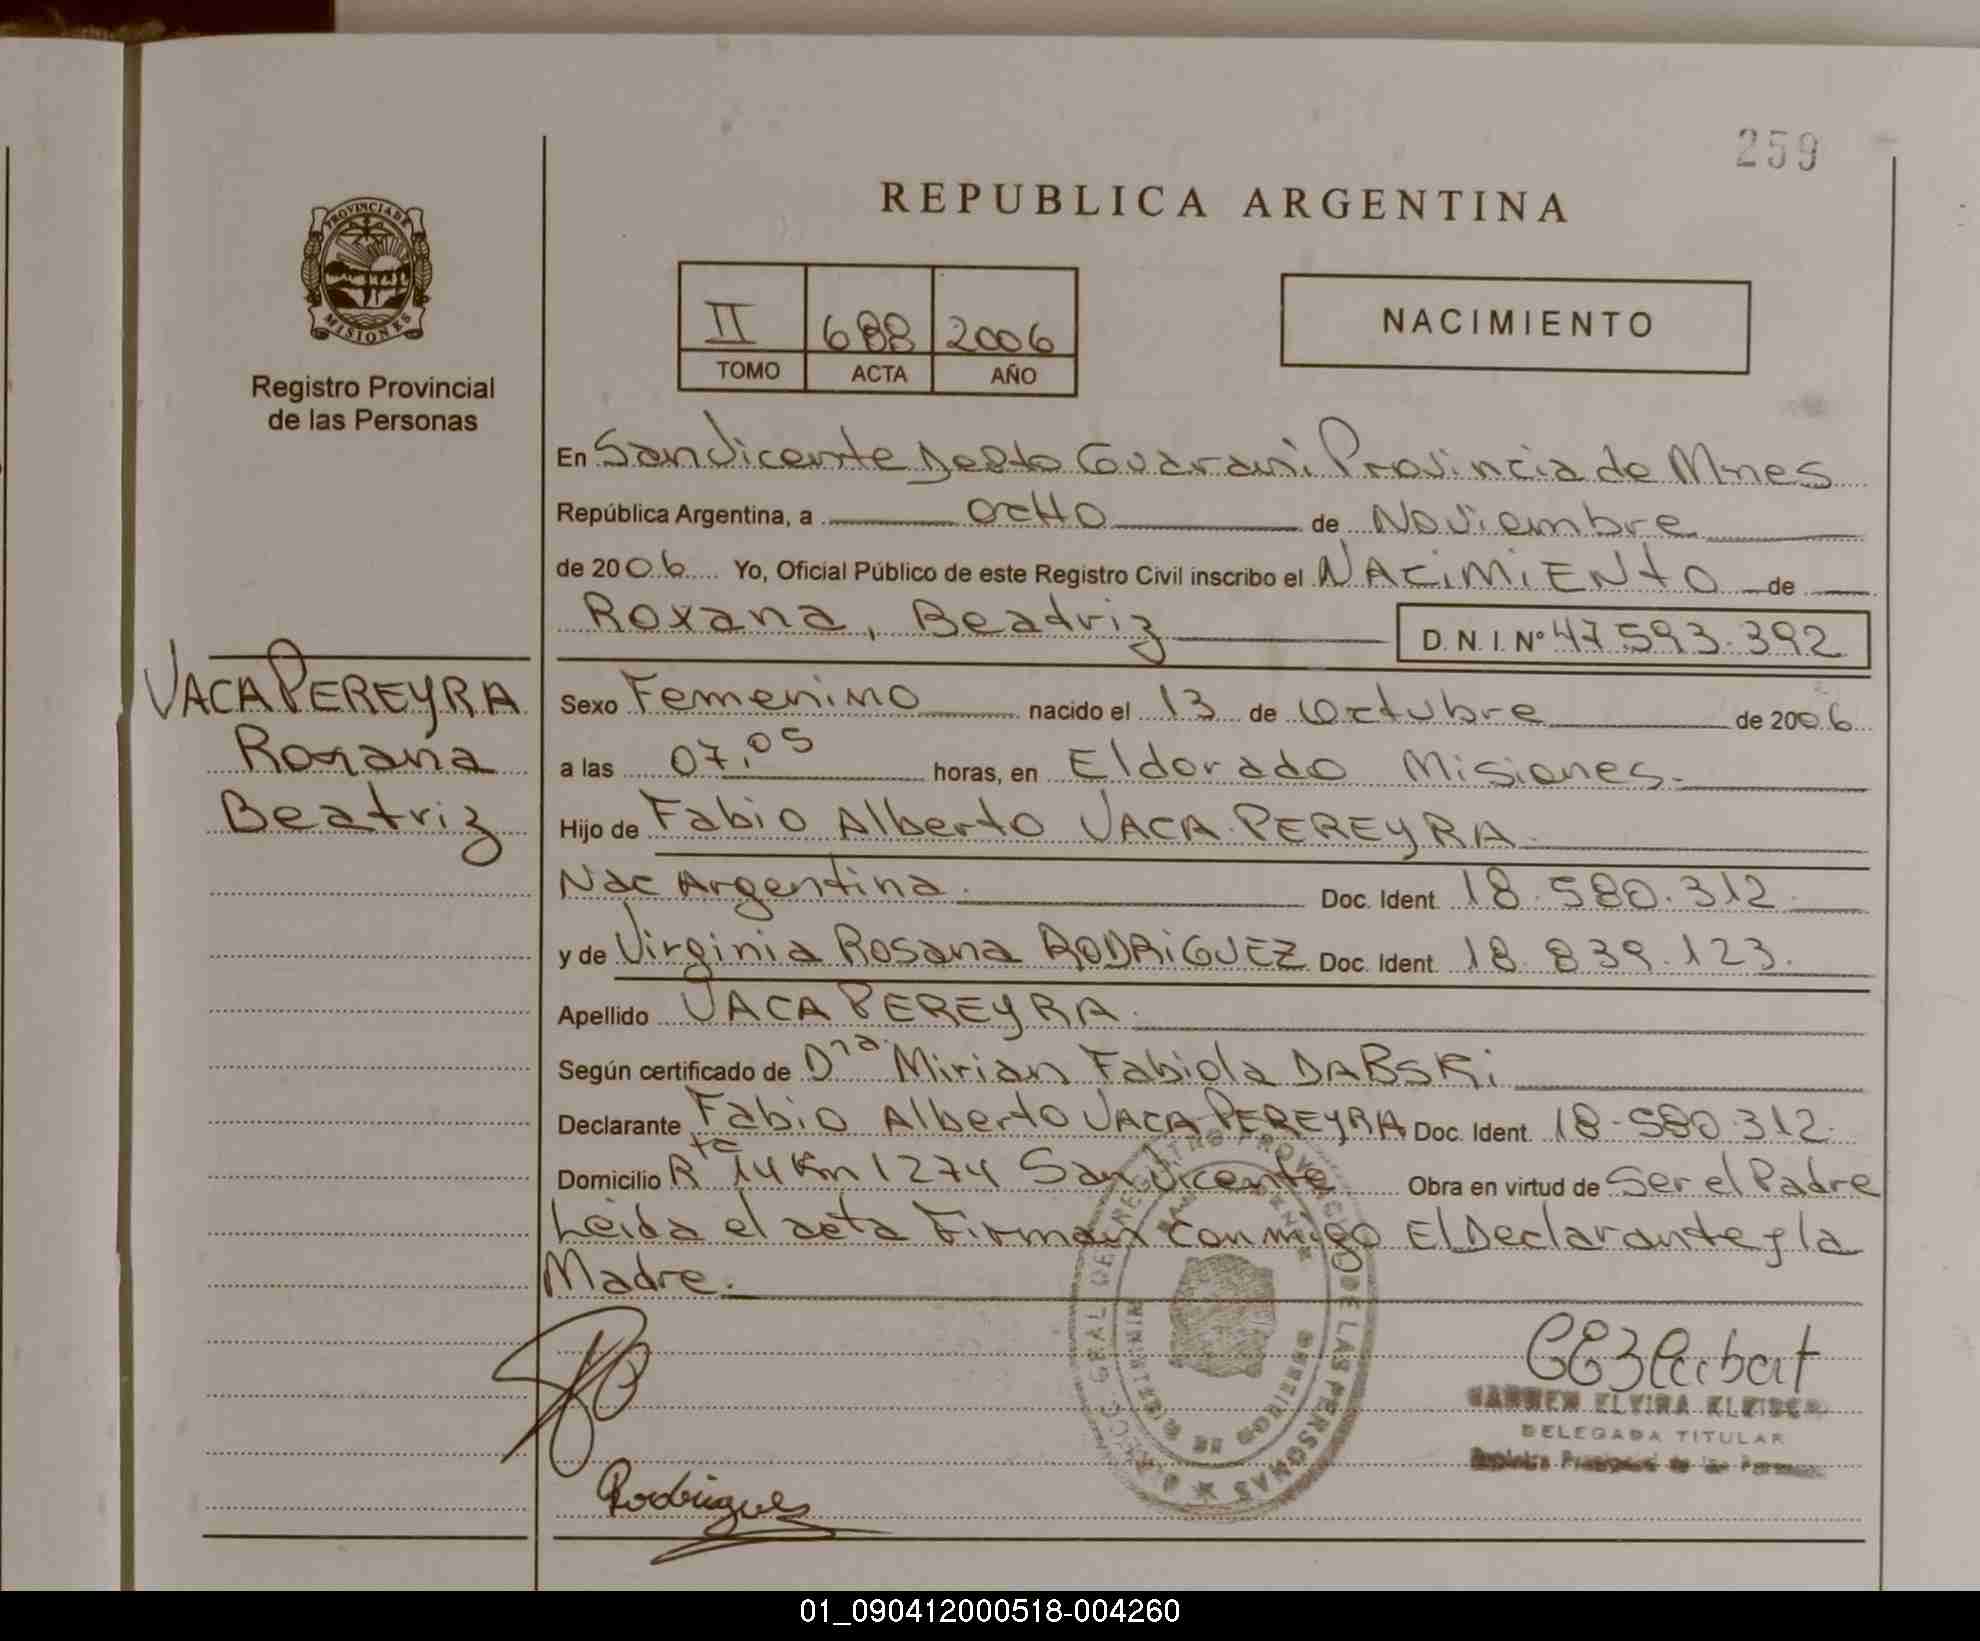 259
REPUBLICA ARGENTINA
PROVINCIA DE
MISIONES
Registro Provincial
de las Personas
II 688 2006
TOMO ACTA AÑO
NACIMIENTO
En San Vicente Depto Guarani Provincia de Mnes
República Argentina, a ocHo de Noviembre
de 2006 Yo, Oficial Público de este Registro Civil inscribo el NACiMiENtO de
Roxana, Beatriz D. N. I. Nº 47.593.392
VACA PEREYRA
Roxana
Beatriz
Sexo Femenino nacido el 13 de Octubre de 2006
a las 07,05 horas, en Eldorado Misiones.
Hijo de Fabio Alberto VACA PEREYRA.
Nac Argentina. Doc. Ident. 18.580.312.
y de Virginia Rosana RODRiGUEZ Doc. Ident. 18.839.123.
Apellido VACA PEREYRA.
Según certificado de Dra Mirian Fabiola DABSKi
Declarante Fabio Alberto VACA PEREYRA Doc. Ident. 18.580.312.
Domicilio Rta 14 Km 1274 San Vicente Obra en virtud de Ser el Padre
Leida el acta Firman conmigo El Declarante y la
Madre.
Rodrigues
CARMEN ELVIRA
DELEGADA TITULAR
Registro Provincial de las Personas
DE LAS PERSONAS
01_090412000518-004260